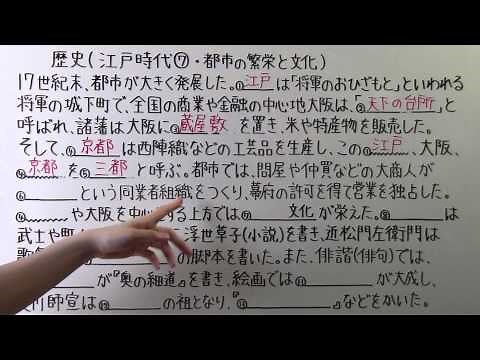 歴史(江戸時代⑦・都市の繁栄と文化)
17世紀末、都市が大きく発展した。江戸は「将軍のおひざもと」といわれる
将軍の城下町で、全国の商業や金融の中心地大阪は、「天下の台所」と
呼ばれ、諸藩は大阪に蔵屋敷を置き、米や特産物を販売した。
そして、京都は西陣織などの工芸品を生産し、この江戸、大阪、
京都を三都と呼ぶ。都市では、問屋や仲買などの大商人が
という同業者組織をつくり、幕府の許可を得て営業を独占した。
や大阪を中心 する上方では 文化が栄えた。 は
武士や町 浮世草子(小説)を書き、近松門左衛門は
の脚本を書いた。また、俳諧(俳句)では、
が『奥の細道』を書き、絵画では が大成し、
川師宣は の祖となり、『 』などをかいた。